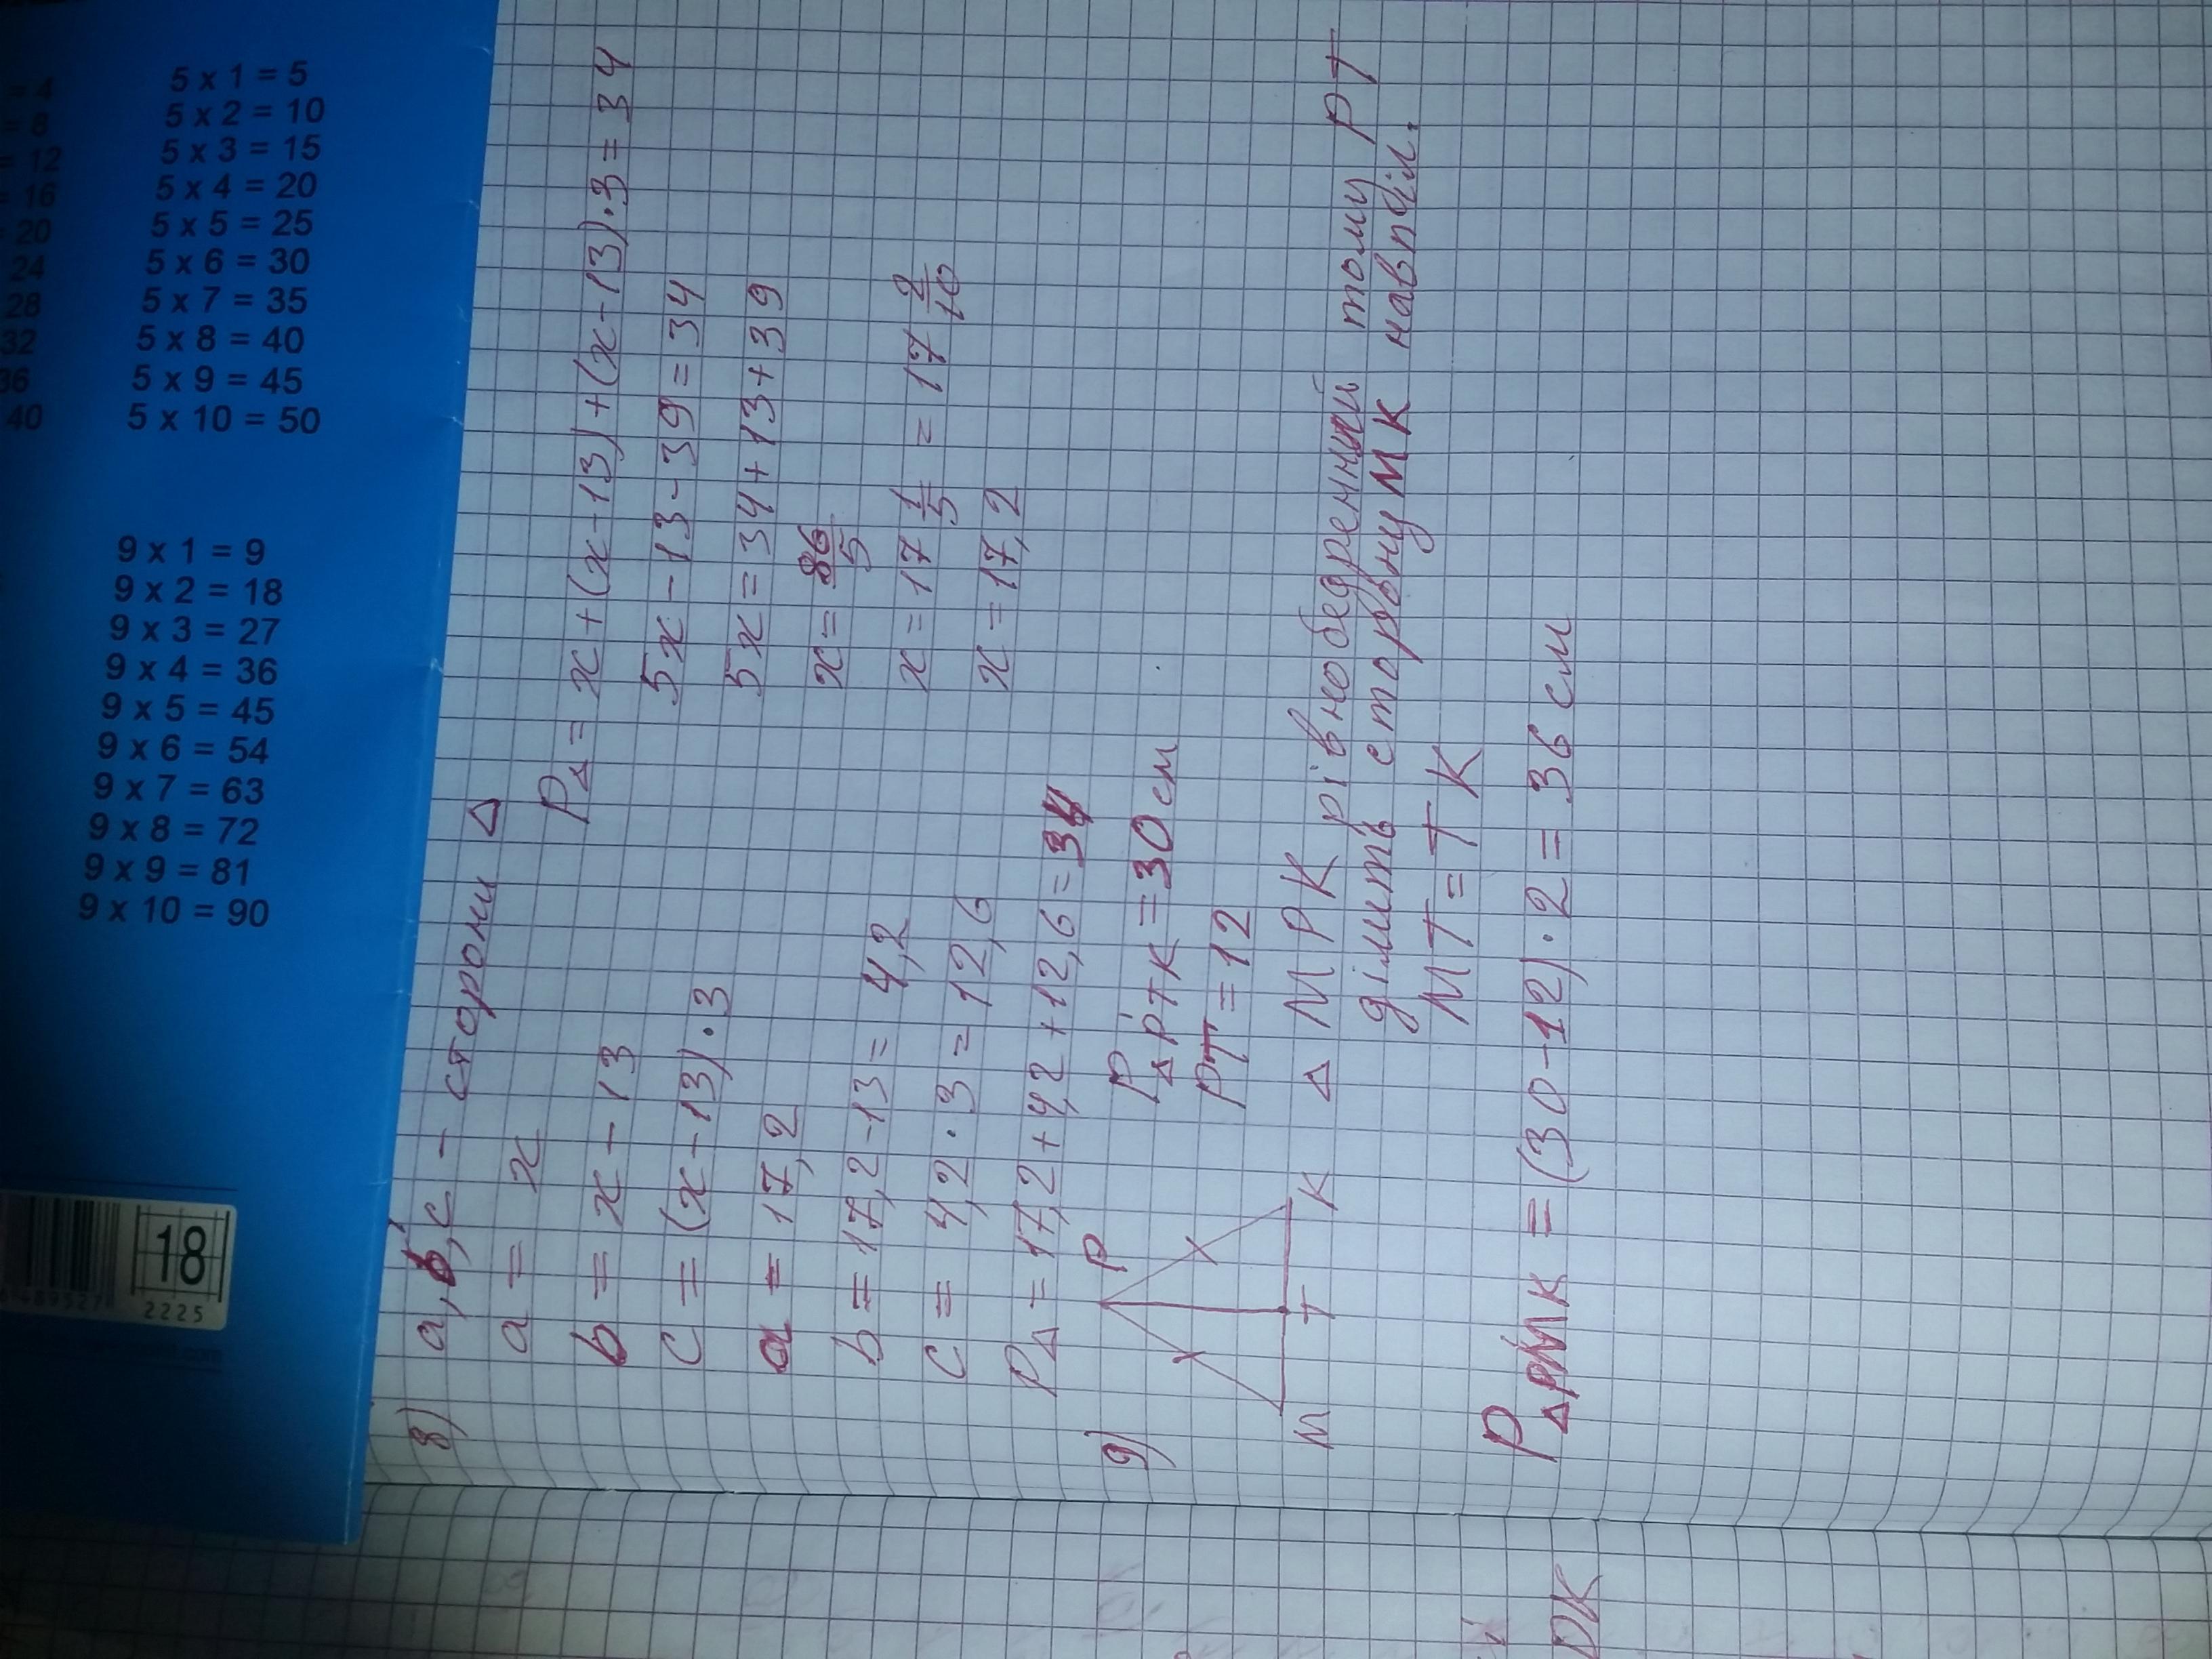 = 4
= 8
= 12
= 16
20
24
28
32
36
40
5 x 1 = 5
5 x 2 = 10
5 x 3 = 15
5 x 4 = 20
5 x 5 = 25
5 x 6 = 30
5 x 7 = 35
5 x 8 = 40
5 x 9 = 45
5 x 10 = 50
9 x 1 = 9
9 x 2 = 18
9 x 3 = 27
9 x 4 = 36
9 x 5 = 45
9 x 6 = 54
9 x 7 = 63
9 x 8 = 72
9 x 9 = 81
9 x 10 = 90
18
2225
8) a, b, c - сторони Δ
a = x
b = x - 13
c = (x - 13) · 3
a = 17,2
b = 17,2 - 13 = 4,2
c = 4,2 · 3 = 12,6
PΔ = 17,2 + 4,2 + 12,6 = 34
PΔ = x + (x - 13) + (x - 13) · 3 = 34
5x - 13 - 39 = 34
5x = 34 + 13 + 39
x = 86/5
x = 17 1/5 = 17 2/10
x = 17,2
9)
P
M T K
PΔPTK = 30 см
PT = 12
Δ MPK рівнобедренний тому PT
ділить сторону MK навпіл.
MT = TK
PΔPMK = (30 - 12) · 2 = 36 см